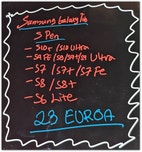 Samsung Galaxy Tab
S Pen
- S10+ / S10 Ultra
- S9 FE / S8 / S9+ / S9 Ultra
- S7 / S7+ / S7 Fe
- S8 / S8+
- S6 Lite
23 EUROA